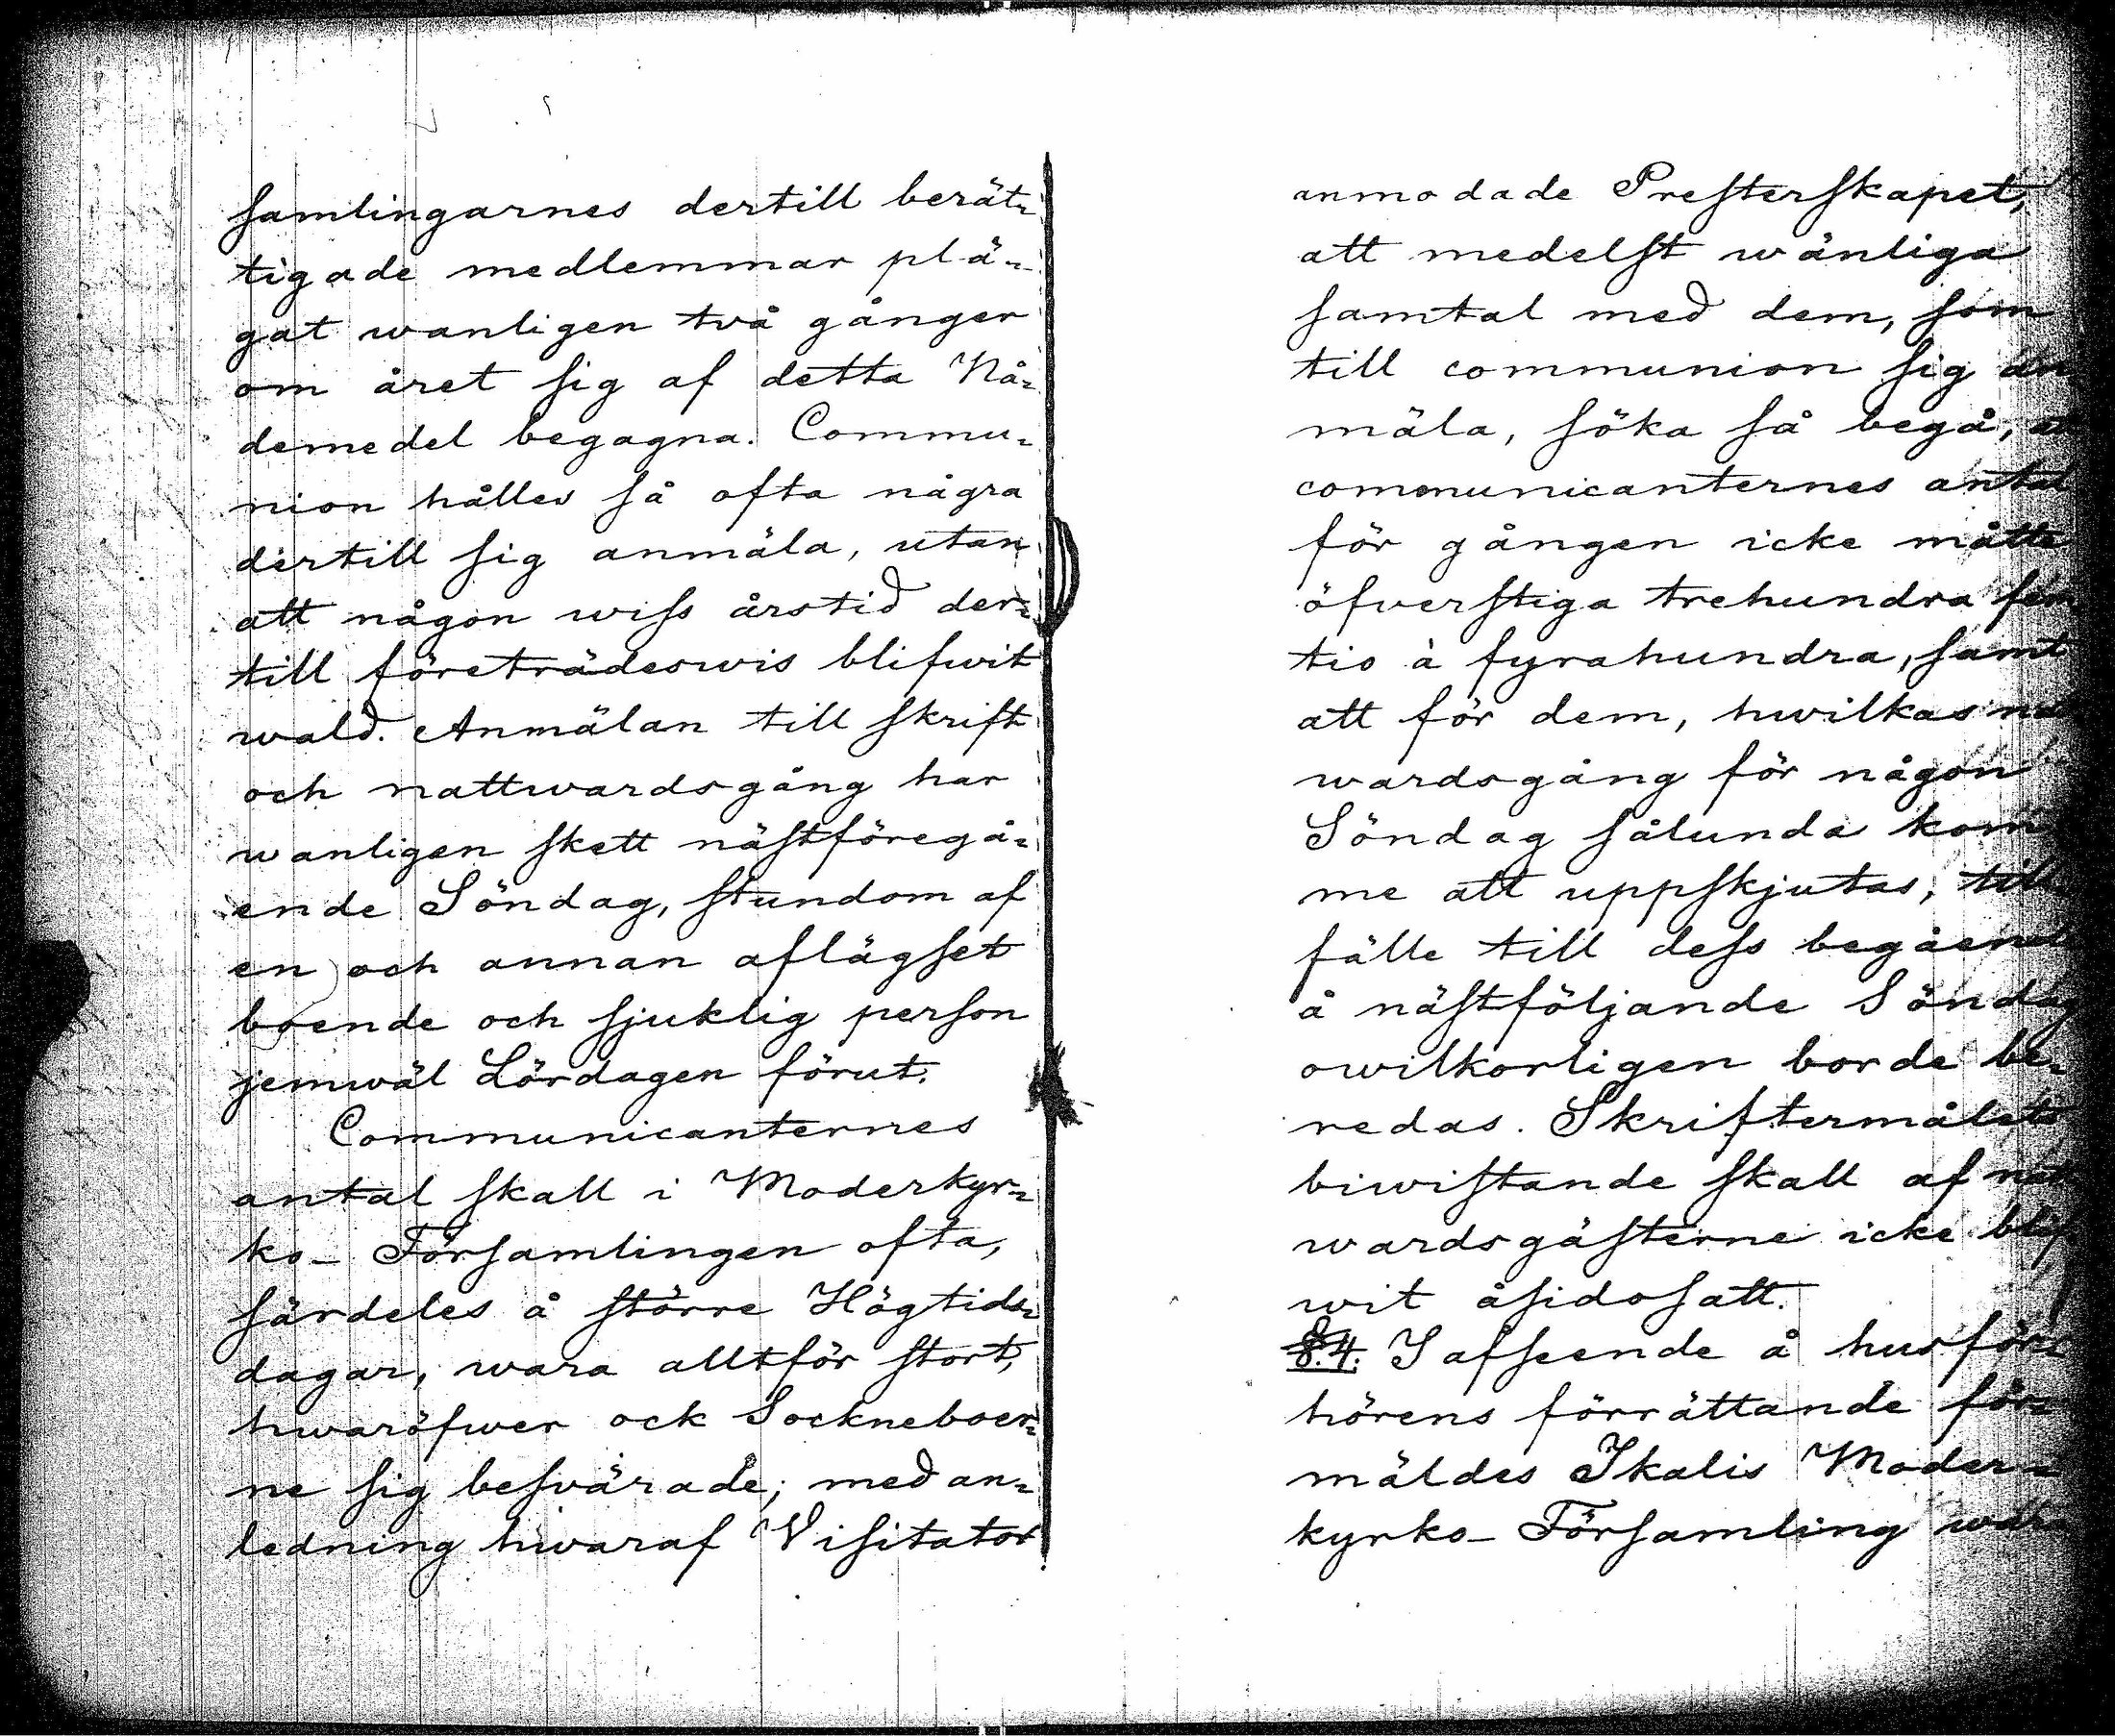 samlingarnes dertill berät-
tigade medlemmar plä-
gat wanligen två gånger
om året sig af detta Nå-
demedel begagna. Commu-
nion hålles så ofta några
dertill sig anmäla, utan
att någon wiss årstid der-
till företrädeswis blifwit
wald. Anmälan till skrift
och nattwardsgång har
wanligen skett nästföregå-
ende Söndag, stundom af
en och annan aflägset
boende och sjuklig person
jemwäl Lördagen förut.
Communicanternes
antal skall i Moderkyr-
ko- Församlingen ofta,
särdeles å större Högtids-
dagar, wara alltför stort,
hwaröfwer ock Sockneboer-
ne sig besvärade; med an-
ledning hwaraf Visitator
anmodade Presterskapet,
att medelst wänliga
samtal med dem, som
till communion sig an
mäla, söka så begå, at
communicanternes antal
för gången icke måtte
öfverstiga trehundra fem
tio à fyrahundra, samt
att för dem, hwilkas na
wardsgång för någon
Söndag sålunda kom
me att uppskjutas, till
fälle till dess begående
å nästföljande Söndag
owilkorligen borde be-
redas. Skriftermålets
biwistande skall af nat
wardsgästerne icke blif
wit åsidosatt.
§.4. I afseende å husför-
hörens förrättande för-
mäldes Ikalis Moder-
kyrko- Församling wara